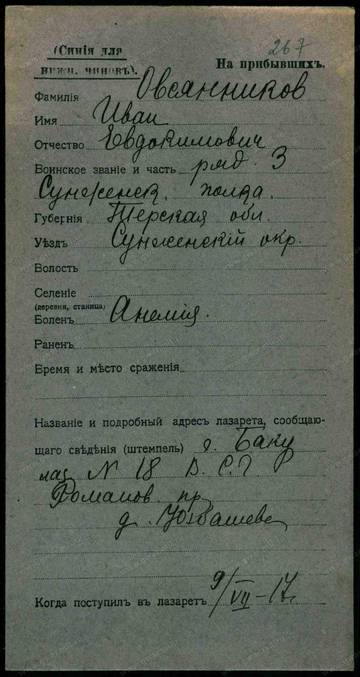 (Синія для
нижн. чиновъ).
267
На прибывшихъ.
Фамилія Овсянников
Имя Иван
Отчество Евдокимович
Воинское званіе и часть ряд. 3
Сунженск. полка.
Губернія Терская обл.
Уѣздъ Сунженскій окр.
Волость
Селеніе
(деревня, станица)
Боленъ Анемія.
Раненъ
Время и мѣсто сраженія
Названіе и подробный адресъ лазарета, сообщаю-
щаго свѣдѣнія (штемпель) г. Баку
лаз. N 18 В. С. Г.
Романов. пр.
д.
Когда поступилъ въ лазаретъ 9/VII-17г.